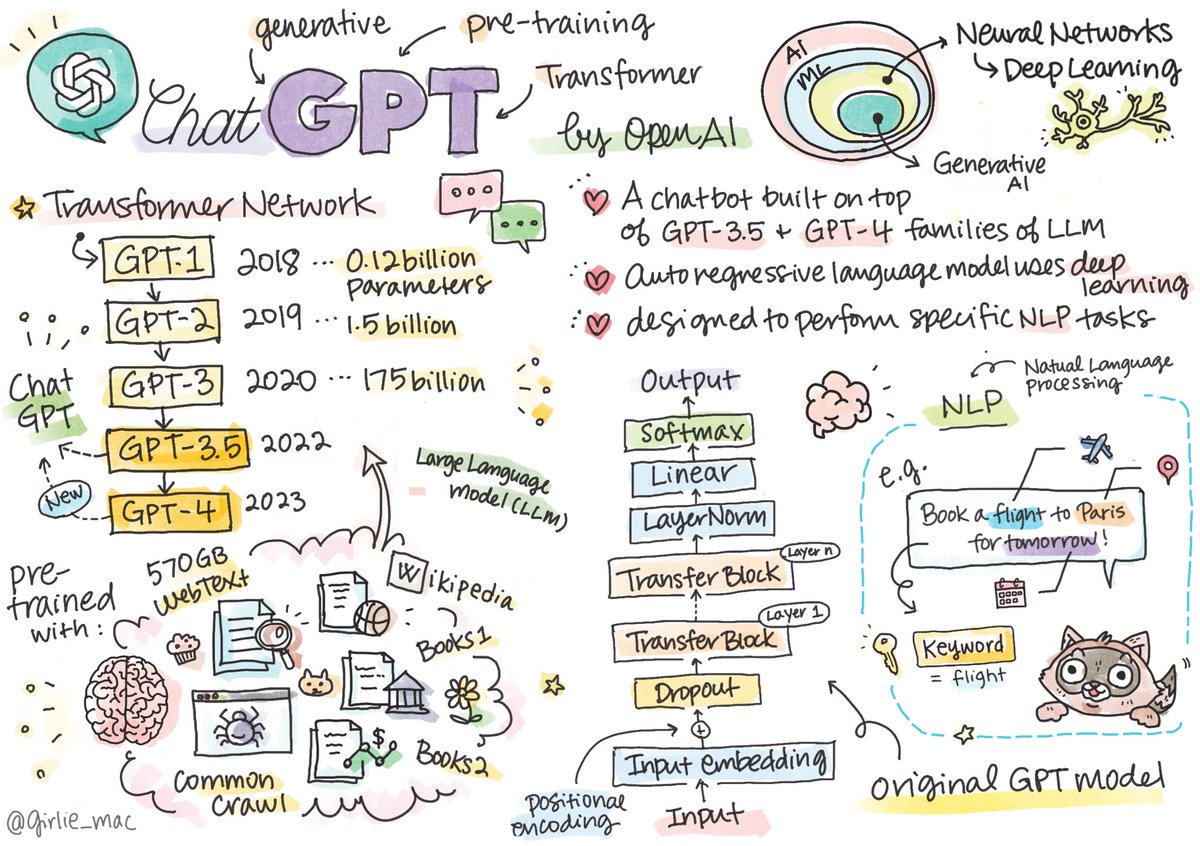 generative
pre-training
Transformer
Chat GPT
by OpenAI
AI
ML
Neural Networks
Deep Learning
Generative
AI
Transformer Network
GPT-1 2018 ... 0.12 billion
parameters
GPT-2 2019 ... 1.5 billion
GPT-3 2020 ... 175 billion
Chat
GPT
GPT-3.5 2022
New
GPT-4 2023
Large Language
model (LLM)
A chatbot built on top
of GPT-3.5 + GPT-4 families of LLM
Auto regressive language model uses deep
learning
designed to perform specific NLP tasks
pre-
trained
with:
570GB
WebText
Wikipedia
Books1
Books2
$
common
crawl
@girlie_mac
Output
Softmax
Linear
LayerNorm
Layer n
Transfer Block
Layer 1
Transfer Block
Dropout
+
Input embedding
positional
encoding
Input
original GPT model
Natual Language
processing
NLP
e.g.
Book a flight to Paris
for tomorrow!
Keyword
= flight